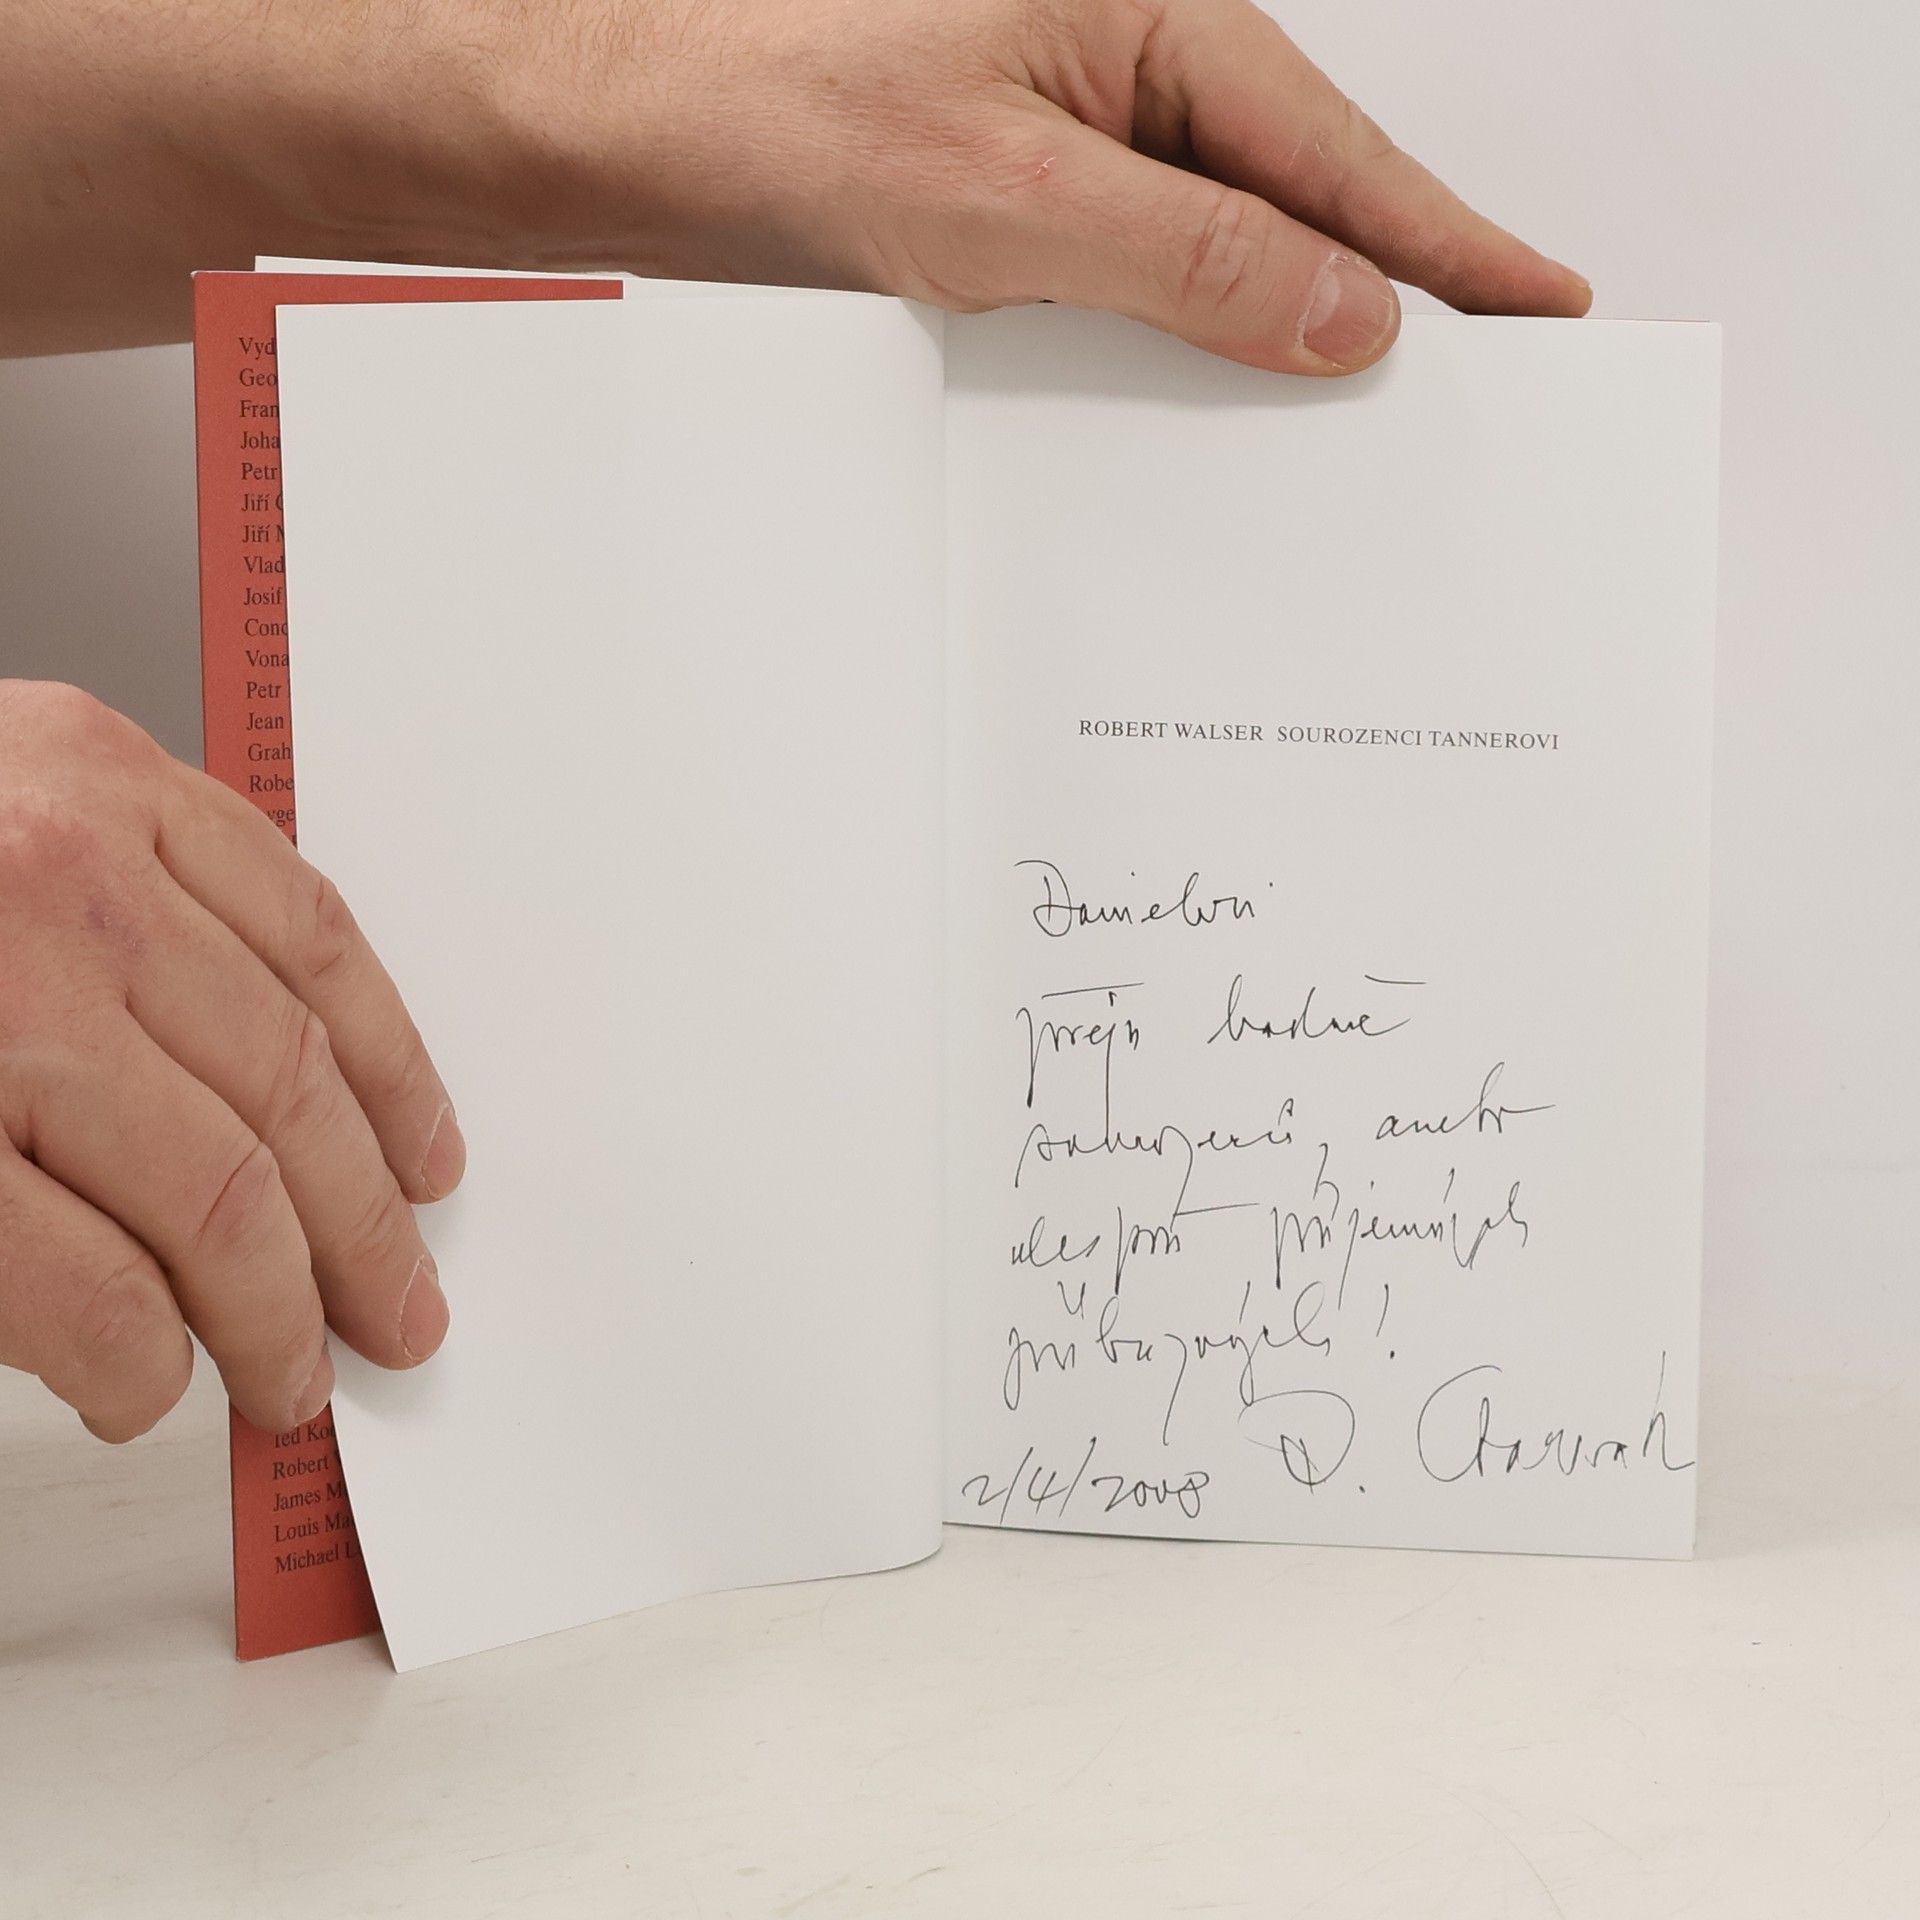 Vyd
Geo
Fran
Joha
Petr
Jiří
Jiří
Vlad
Josif
Cond
Vona
Petr
Jean
Grah
Robe
Ted Ko
Robert
James M
Louis Ma
Michael L
ROBERT WALSER SOUROZENCI TANNEROVI
Danielovi
přeju hodně
sourozenců, anebo
alespoň příjemných
příbuzných!
2/4/2008 R. Charvát